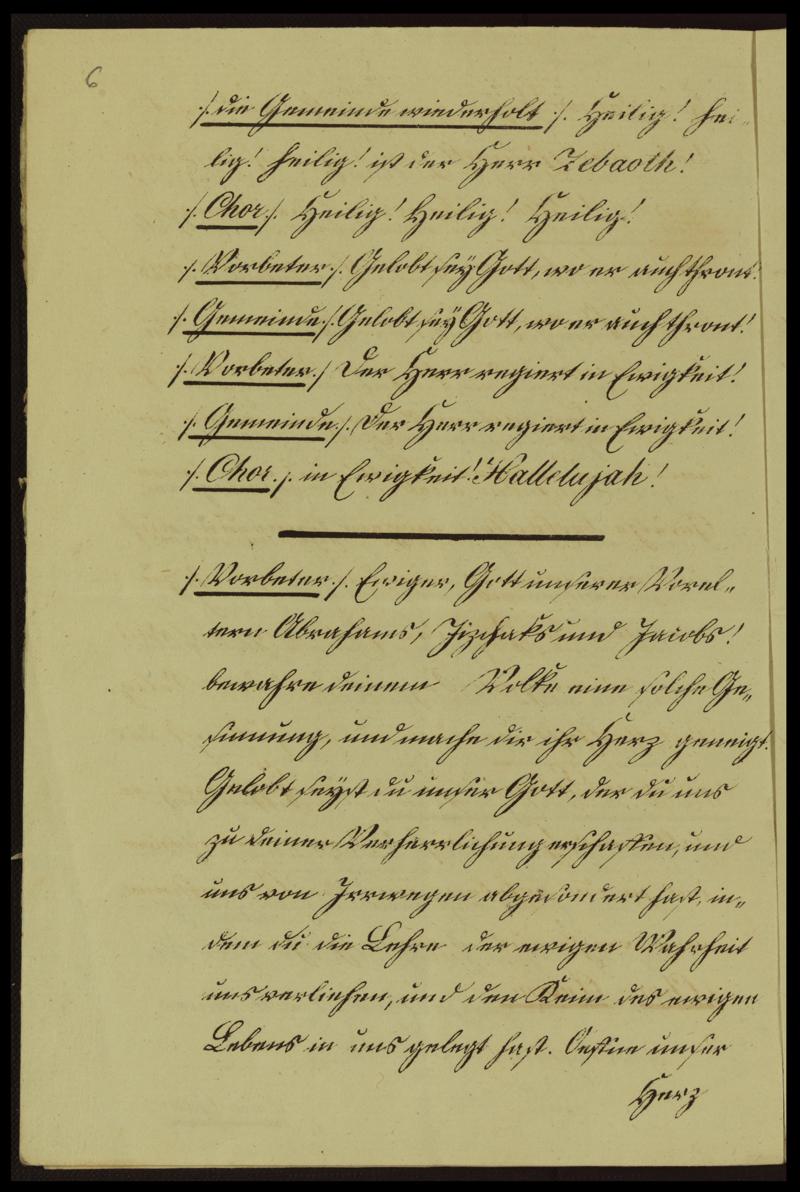 6
/. die Gemeinde wiederholt ./. Heilig! hei-
lig! heilig! ist der Herr Zebaoth!
/. Chor ./. Heilig! Heilig! Heilig!
/. Vorbeter ./. Gelobt sey Gott, wo er auch thront.
/. Gemeinde ./. Gelobt sey Gott, wo er auch thront!
/. Vorbeter ./ Der Herr regiert in Ewigkeit!
/. Gemeinde ./. Der Herr regiert in Ewigkeit!
/. Chor ./. in Ewigkeit! Hallelujah!
/. Vorbeter ./. Ewiger, Gott unserer Vorel„
tern Abrahams, Jizchaks und Jacobs!
bewahre deinem Volke eine solche Ge„
sinnung, und mache dir ihr Herz geneigt.
Gelobt seyst du unser Gott, der du uns
zu deiner Verherrlichung erschaffen, und
uns von Irrwegen abgesondert hast, in„
dem du die Lehre der ewigen Wahrheit
uns verliehen, und den Keim des ewigen
Lebens in uns gelegt hast. Oeffne unser
Herz